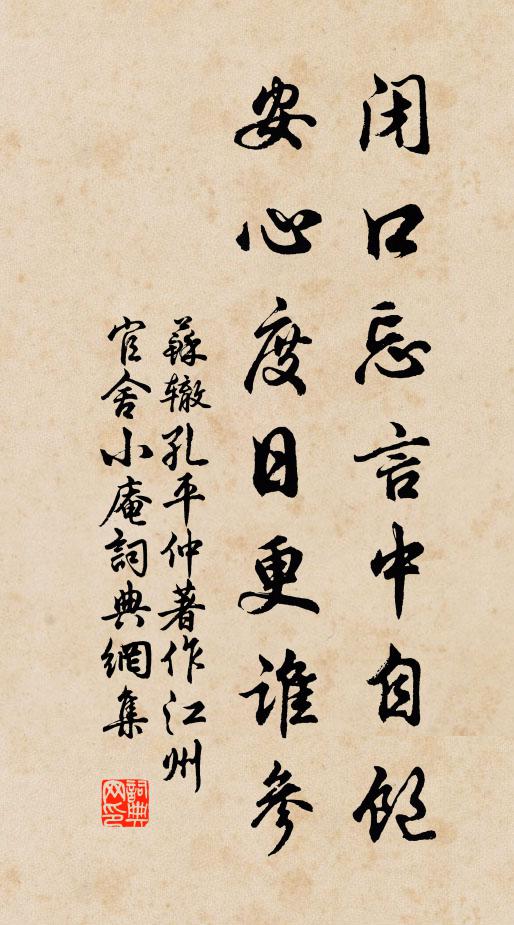 闭口忘言中自饱
安心度日更谁参
蘇辙孔平仲著作江州
官舍小庵詞典網集
詞典网印